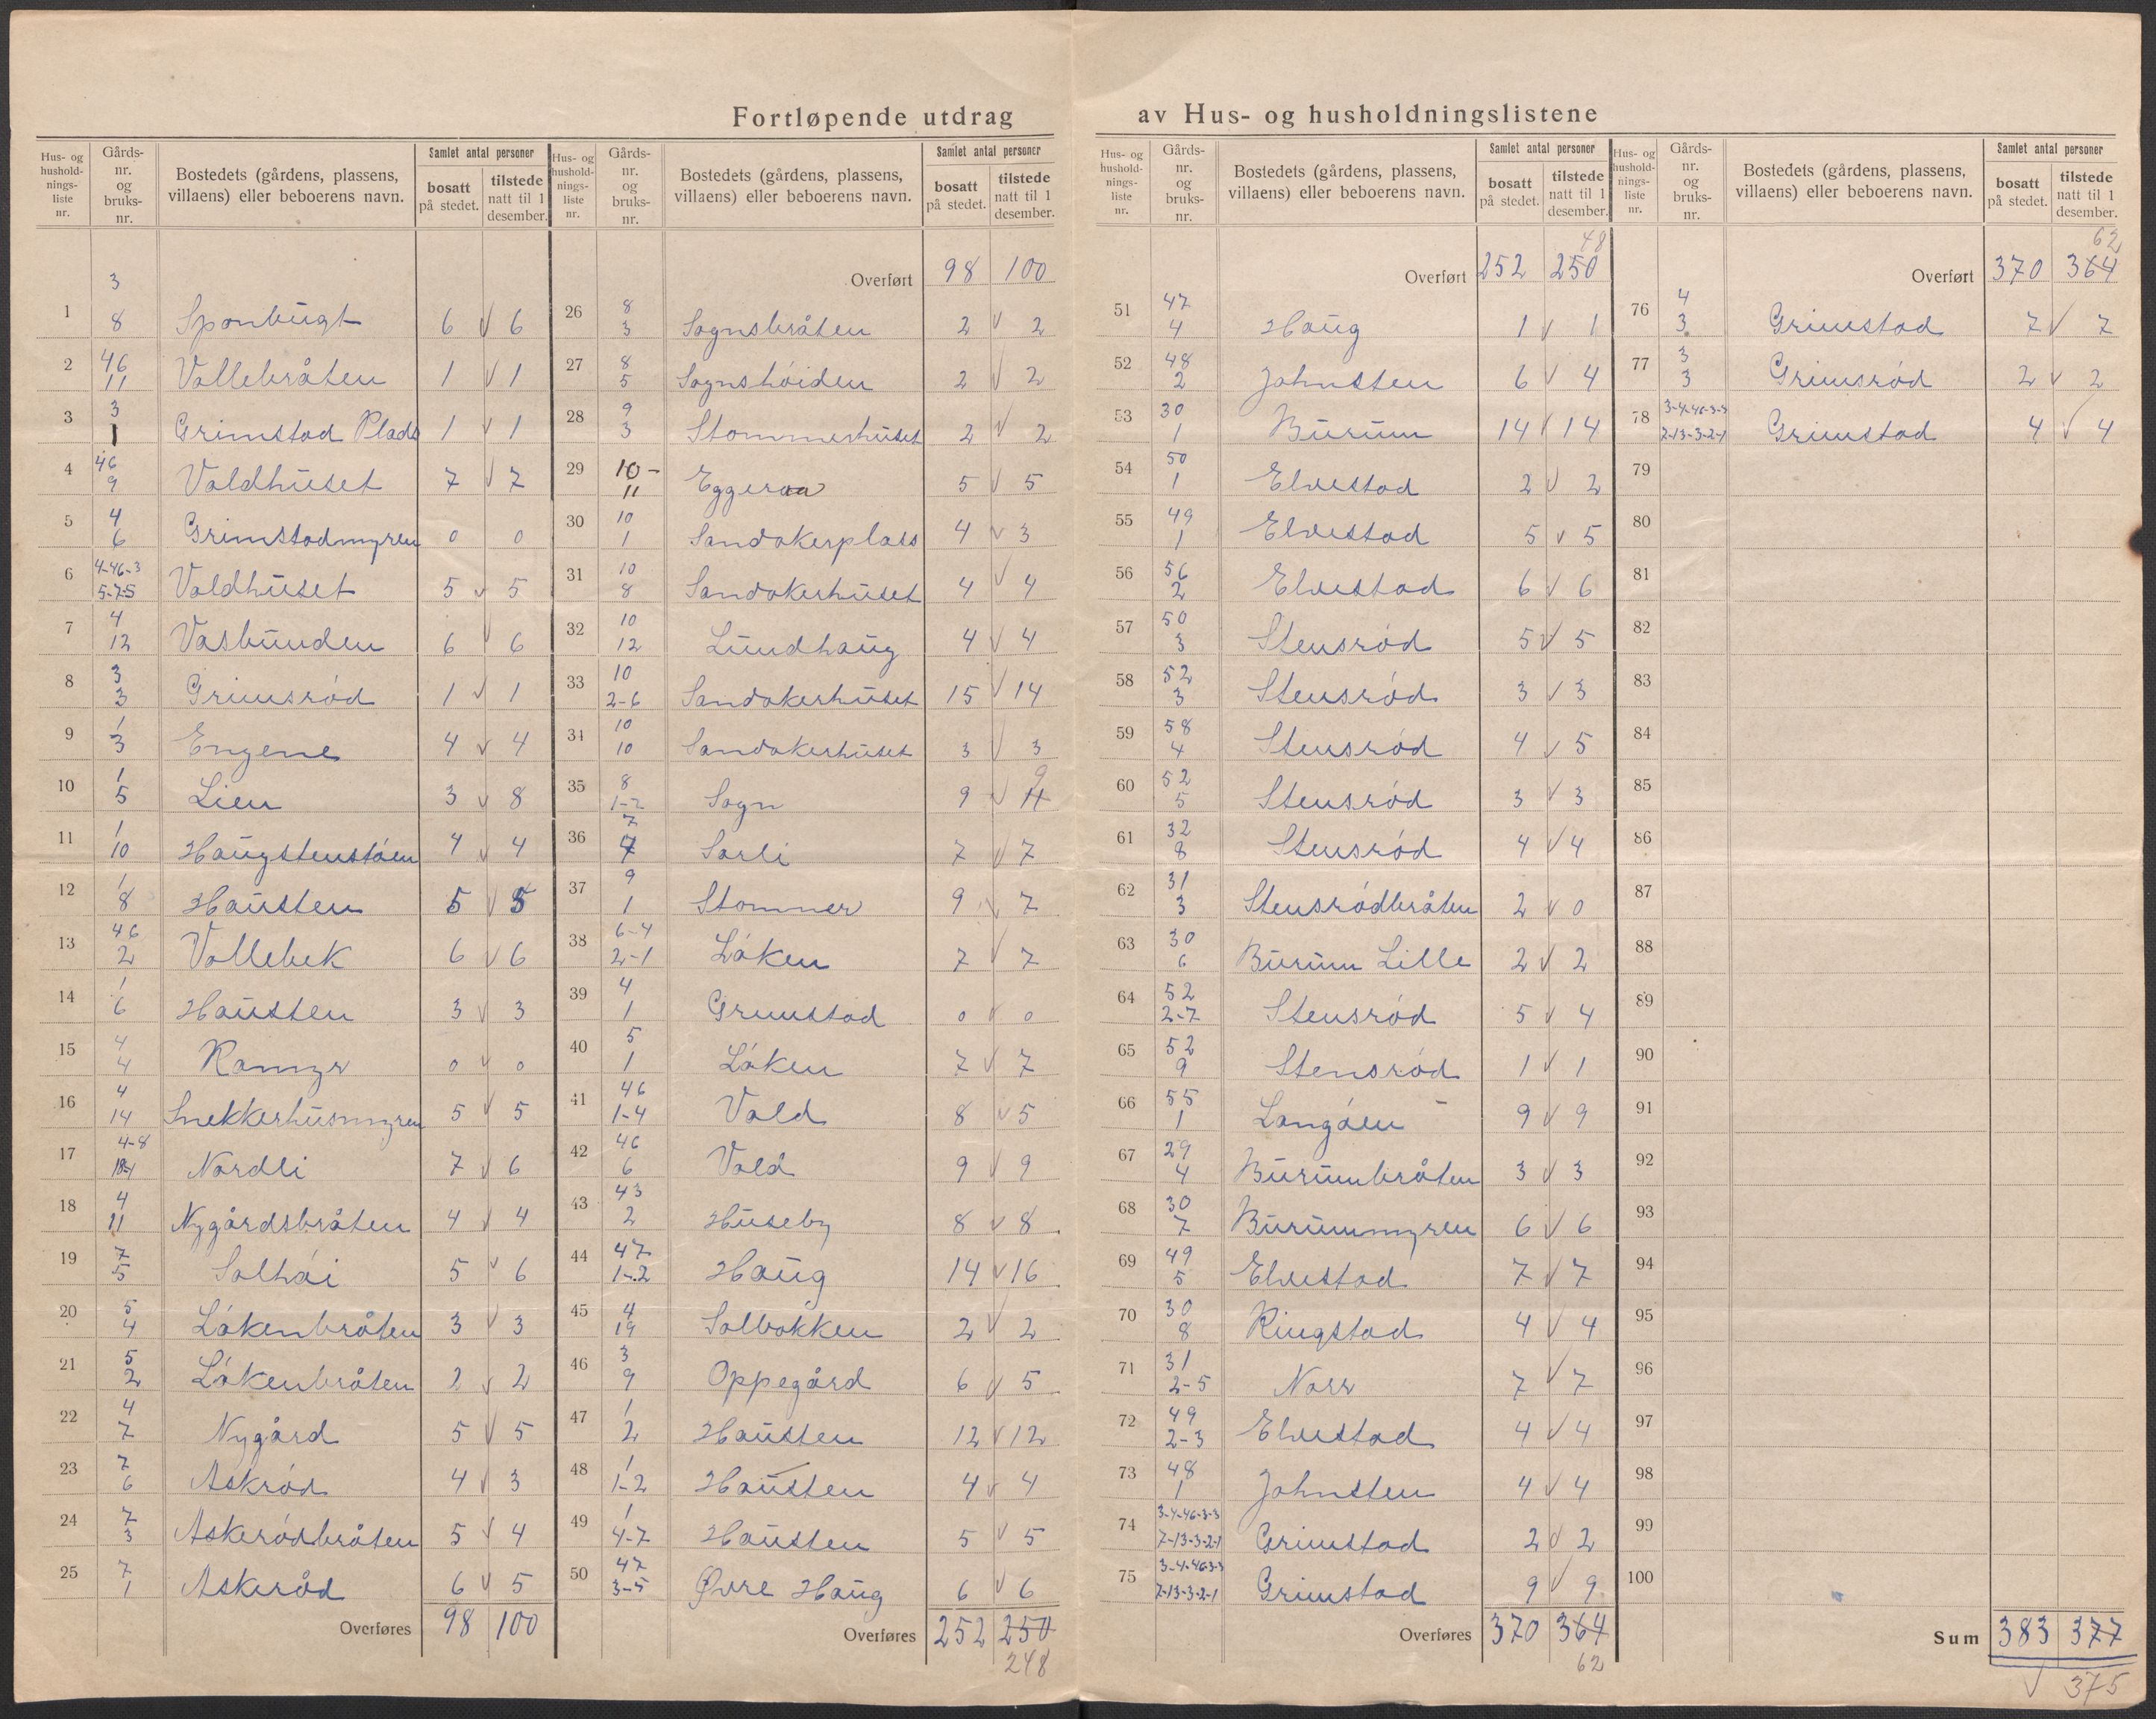 Fortløpende utdrag av Hus- og husholdningslistene
Hus- og hushold-nings-liste nr. | Gårds-nr. og bruks-nr. | Bostedets (gårdens, plassens, villaens) eller beboerens navn. | Samlet antal personer | bosatt på stedet. | tilstede natt til 1 desember.
1 | 3 8 | Sponbugt | 6 √ 6
2 | 46 11 | Vallebråten | 1 √ 1
3 | 3 1 | Grimstad Plads | 1 √ 1
4 | 46 9 | Valdhuset | 7 √ 7
5 | 4 6 | Grimstadmyren | 0 0
6 | 4-46-3 5-7-5 | Valdhuset | 5 √ 5
7 | 4 12 | Vasbunden | 6 √ 6
8 | 3 3 | Grimsrød | 1 √ 1
9 | 1 3 | Engene | 4 √ 4
10 | 1 5 | Lien | 3 √ 8
11 | 1 10 | Haugstenstøen | 4 √ 4
12 | 1 8 | Hausten | 5 √ 5
13 | 46 2 | Vallebek | 6 √ 6
14 | 1 6 | Hausten | 3 √ 3
15 | 4 4 | Ramyr | 0 √ 0
16 | 4 14 | Snekkerhusmyren | 5 √ 5
17 | 4-8 | Nordli | 7 √ 6
18 | 4 11 | Nygårdsbråten | 4 √ 4
19 | 7 5 | Solhøi | 5 √ 6
20 | 5 4 | Løkenbråten | 3 √ 3
21 | 5 2 | Løkenbråten | 2 √ 2
22 | 4 7 | Nygård | 5 √ 5
23 | 7 6 | Askrød | 4 √ 3
24 | 7 3 | Askerødbråten | 5 √ 4
25 | 7 1 | Askerød | 6 √ 5
Overføres 98 100
Hus- og hushold-nings-liste nr. | Gårds-nr. og bruks-nr. | Bostedets (gårdens, plassens, villaens) eller beboerens navn. | Samlet antal personer | bosatt på stedet. | tilstede natt til 1 desember.
Overført 98 100
26 | 8 3 | Sognsbråten | 2 √ 2
27 | 8 5 | Sognshøiden | 2 √ 2
28 | 9 3 | Stommerhuset | 2 √ 2
29 | 10- 11 | Eggeraa | 5 √ 5
30 | 10 1 | Sandakerplass | 4 √ 3
31 | 10 8 | Sandakerhuset | 4 √ 4
32 | 10 12 | Lundhaug | 4 √ 4
33 | 10 2-6 | Sandakerhuset | 15 √ 14
34 | 10 10 | Sandakerhuset | 3 √ 3
35 | 8 1-2 | Sogn | 9 √ 11 9
36 | 7 7 | Sørli | 7 √ 7
37 | 9 1 | Stommer | 9 √ 7
38 | 6-4 2-1 | Løken | 7 √ 7
39 | 4 1 | Grimstad | 0 √ 0
40 | 5 1 | Løken | 7 √ 7
41 | 46 1-4 | Vald | 8 √ 5
42 | 46 6 | Vald | 9 √ 9
43 | 43 2 | Huseby | 8 √ 8
44 | 47 1-2 | Haug | 14 √ 16
45 | 4 19 | Solbakken | 2 √ 2
46 | 3 9 | Oppegård | 6 √ 5
47 | 1 2 | Hausten | 12 √ 12
48 | 1 1-2 | Hausten | 4 √ 4
49 | 1 4-7 | Hausten | 5 √ 5
50 | 47 3-5 | Øvre Haug | 6 √ 6
Overføres 252 250
248
Hus- og hushold-nings-liste nr. | Gårds-nr. og bruks-nr. | Bostedets (gårdens, plassens, villaens) eller beboerens navn. | Samlet antal personer | bosatt på stedet. | tilstede natt til 1 desember.
48
Overført 252 250
51 | 47 4 | Haug | 1 √ 1
52 | 48 2 | Johnsten | 6 √ 4
53 | 30 1 | Burum | 14 √ 14
54 | 50 1 | Elvestad | 2 √ 2
55 | 49 1 | Elvestad | 5 √ 5
56 | 56 2 | Elvestad | 6 √ 6
57 | 50 3 | Stensrød | 5 √ 5
58 | 52 3 | Stensrød | 3 √ 3
59 | 58 4 | Stensrød | 4 √ 5
60 | 52 5 | Stensrød | 3 √ 3
61 | 32 8 | Stensrød | 4 √ 4
62 | 31 3 | Stensrødbråten | 2 √ 0
63 | 30 6 | Burum Lille | 2 √ 2
64 | 52 2-7 | Stensrød | 5 √ 4
65 | 52 9 | Stensrød | 1 √ 1
66 | 55 1 | Langøen | 9 √ 9
67 | 29 4 | Burumbråten | 3 √ 3
68 | 30 7 | Burummyren | 6 √ 6
69 | 49 5 | Elvestad | 7 √ 7
70 | 30 8 | Ringstad | 4 √ 4
71 | 31 2-5 | Norr | 7 √ 7
72 | 49 2-3 | Elvestad | 4 √ 4
73 | 48 1 | Johnsten | 4 √ 4
74 | 3-4-46-3-3 7-13-3-2-1 | Grimstad | 2 √ 2
75 | 3-4-46-3-3 7-13-3-2-1 | Grimstad | 9 √ 9
Overføres 370 364
62
Hus- og hushold-nings-liste nr. | Gårds-nr. og bruks-nr. | Bostedets (gårdens, plassens, villaens) eller beboerens navn. | Samlet antal personer | bosatt på stedet. | tilstede natt til 1 desember.
62
Overført 370 364
76 | 4 3 | Grimstad | 7 √ 7
77 | 3 3 | Grimsrød | 2 √ 2
78 | 3-4-46-3-3 7-13-3-2-1 | Grimstad | 4 √ 4
79
80
81
82
83
84
85
86
87
88
89
90
91
92
93
94
95
96
97
98
99
100
Sum 383 377
√ 375